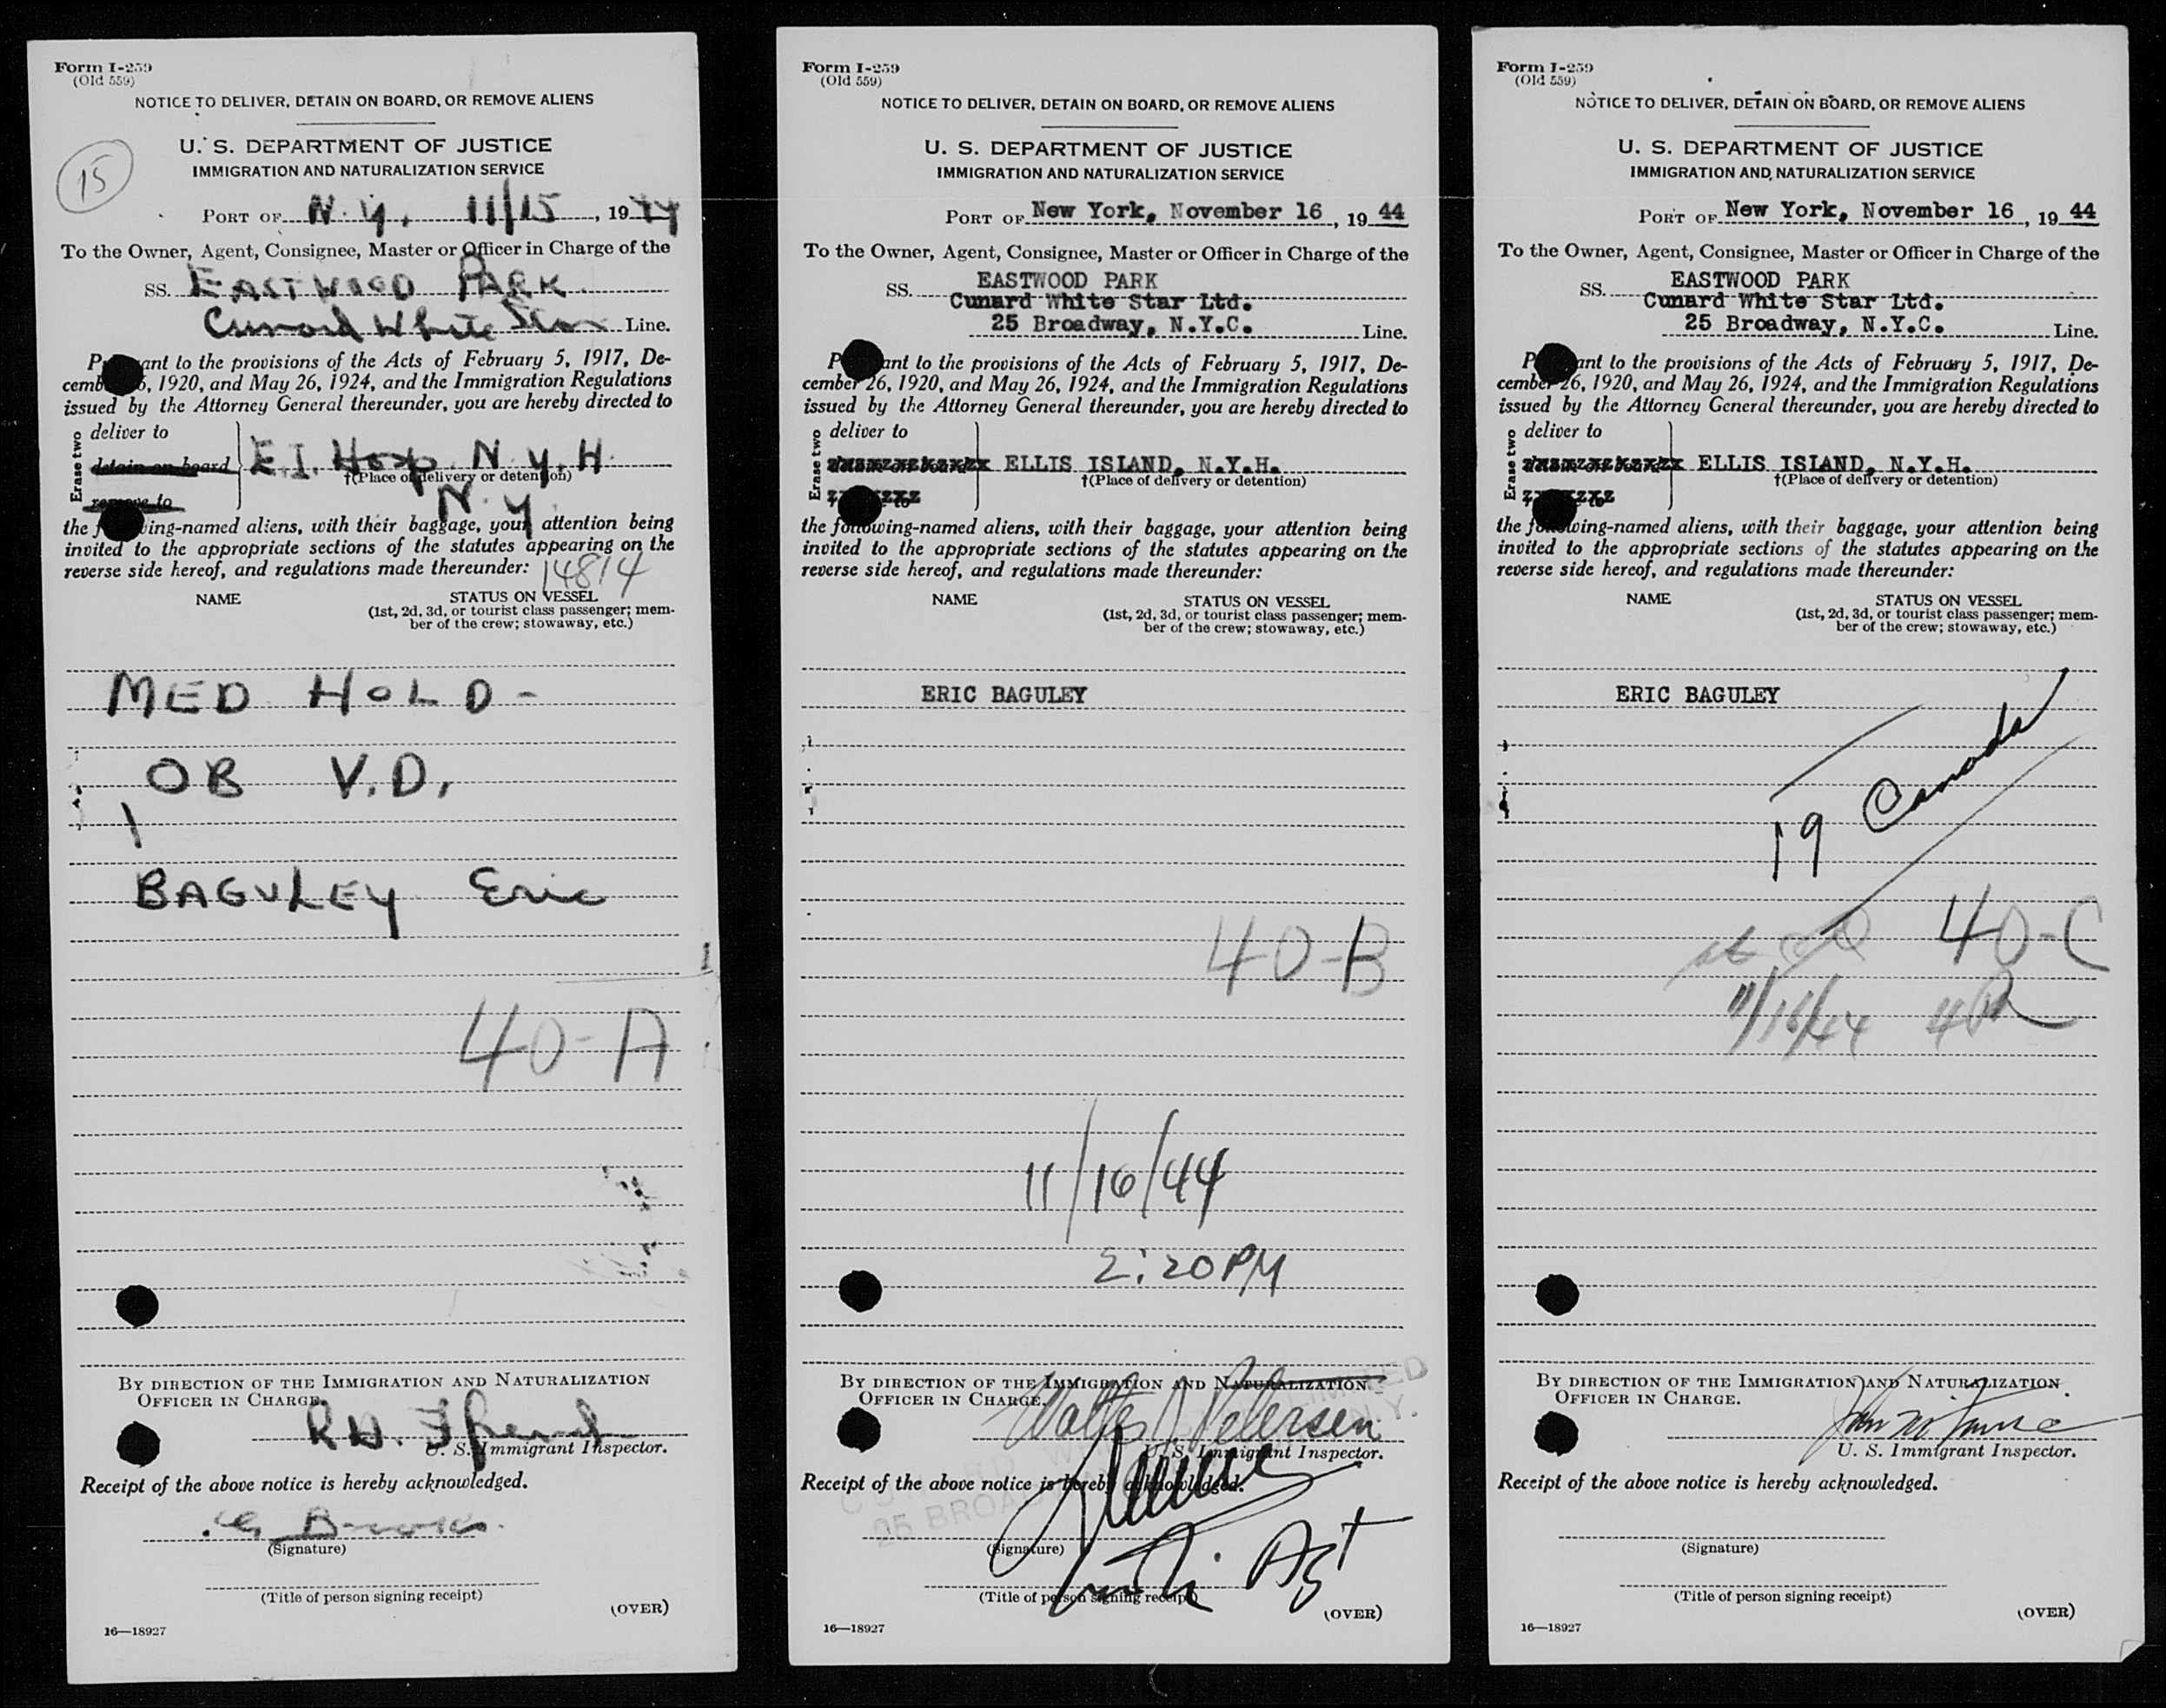 Form I-259
(Old 559)
NOTICE TO DELIVER, DETAIN ON BOARD, OR REMOVE ALIENS
U. S. DEPARTMENT OF JUSTICE
IMMIGRATION AND NATURALIZATION SERVICE
15
PORT OF N.Y. 11/15, 1944
To the Owner, Agent, Consignee, Master or Officer in Charge of the
SS. EASTWOOD PARK
Cunard White Star Line.
ant to the provisions of the Acts of February 5, 1917, De-
cemb 6, 1920, and May 26, 1924, and the Immigration Regulations
issued by the Attorney General thereunder, you are hereby directed to
Erase two
deliver to
detain on board
remove to
E.I. Hosp. N.Y.H.
†(Place of delivery or detention)
N.Y
the f ing-named aliens, with their baggage, your attention being
invited to the appropriate sections of the statutes appearing on the
reverse side hereof, and regulations made thereunder:
14814
NAME STATUS ON VESSEL
(1st, 2d, 3d, or tourist class passenger; mem-
ber of the crew; stowaway, etc.)
MED HOLD -
OB V.D.
1
BAGULEY Eric
40-A
BY DIRECTION OF THE IMMIGRATION AND NATURALIZATION
OFFICER IN CHARGE.
U. S. Immigrant Inspector.
Receipt of the above notice is hereby acknowledged.
(Signature)
(Title of person signing receipt)
(OVER)
16—18927
Form I-259
(Old 559)
NOTICE TO DELIVER, DETAIN ON BOARD, OR REMOVE ALIENS
U. S. DEPARTMENT OF JUSTICE
IMMIGRATION AND NATURALIZATION SERVICE
PORT OF New York, November 16, 19 44
To the Owner, Agent, Consignee, Master or Officer in Charge of the
SS. EASTWOOD PARK
Cunard White Star Ltd.
25 Broadway, N.Y.C. Line.
P ant to the provisions of the Acts of February 5, 1917, De-
cember 26, 1920, and May 26, 1924, and the Immigration Regulations
issued by the Attorney General thereunder, you are hereby directed to
Erase two
deliver to
ELLIS ISLAND, N.Y.H.
†(Place of delivery or detention)
the following-named aliens, with their baggage, your attention being
invited to the appropriate sections of the statutes appearing on the
reverse side hereof, and regulations made thereunder:
NAME STATUS ON VESSEL
(1st, 2d, 3d, or tourist class passenger; mem-
ber of the crew; stowaway, etc.)
ERIC BAGULEY
40-B
11/16/44
2:20 PM
BY DIRECTION OF THE IMMIGRATION AND NATURALIZATION
OFFICER IN CHARGE.
Walter J Pedersen
U. S. Immigrant Inspector.
Receipt of the above notice is hereby acknowledged.
25 BROA
(Signature)
Agt
(Title of person signing receipt)
(OVER)
16—18927
Form I-259
(Old 559)
NOTICE TO DELIVER, DETAIN ON BOARD, OR REMOVE ALIENS
U. S. DEPARTMENT OF JUSTICE
IMMIGRATION AND NATURALIZATION SERVICE
PORT OF New York, November 16, 19 44
To the Owner, Agent, Consignee, Master or Officer in Charge of the
SS. EASTWOOD PARK
Cunard White Star Ltd.
25 Broadway, N.Y.C. Line.
P ant to the provisions of the Acts of February 5, 1917, De-
cember 26, 1920, and May 26, 1924, and the Immigration Regulations
issued by the Attorney General thereunder, you are hereby directed to
Erase two
deliver to
ELLIS ISLAND, N.Y.H.
†(Place of delivery or detention)
the following-named aliens, with their baggage, your attention being
invited to the appropriate sections of the statutes appearing on the
reverse side hereof, and regulations made thereunder:
NAME STATUS ON VESSEL
(1st, 2d, 3d, or tourist class passenger; mem-
ber of the crew; stowaway, etc.)
ERIC BAGULEY
19 Canada
40-C
11/16/44
BY DIRECTION OF THE IMMIGRATION AND NATURALIZATION
OFFICER IN CHARGE.
U. S. Immigrant Inspector.
Receipt of the above notice is hereby acknowledged.
(Signature)
(Title of person signing receipt)
(OVER)
16—18927